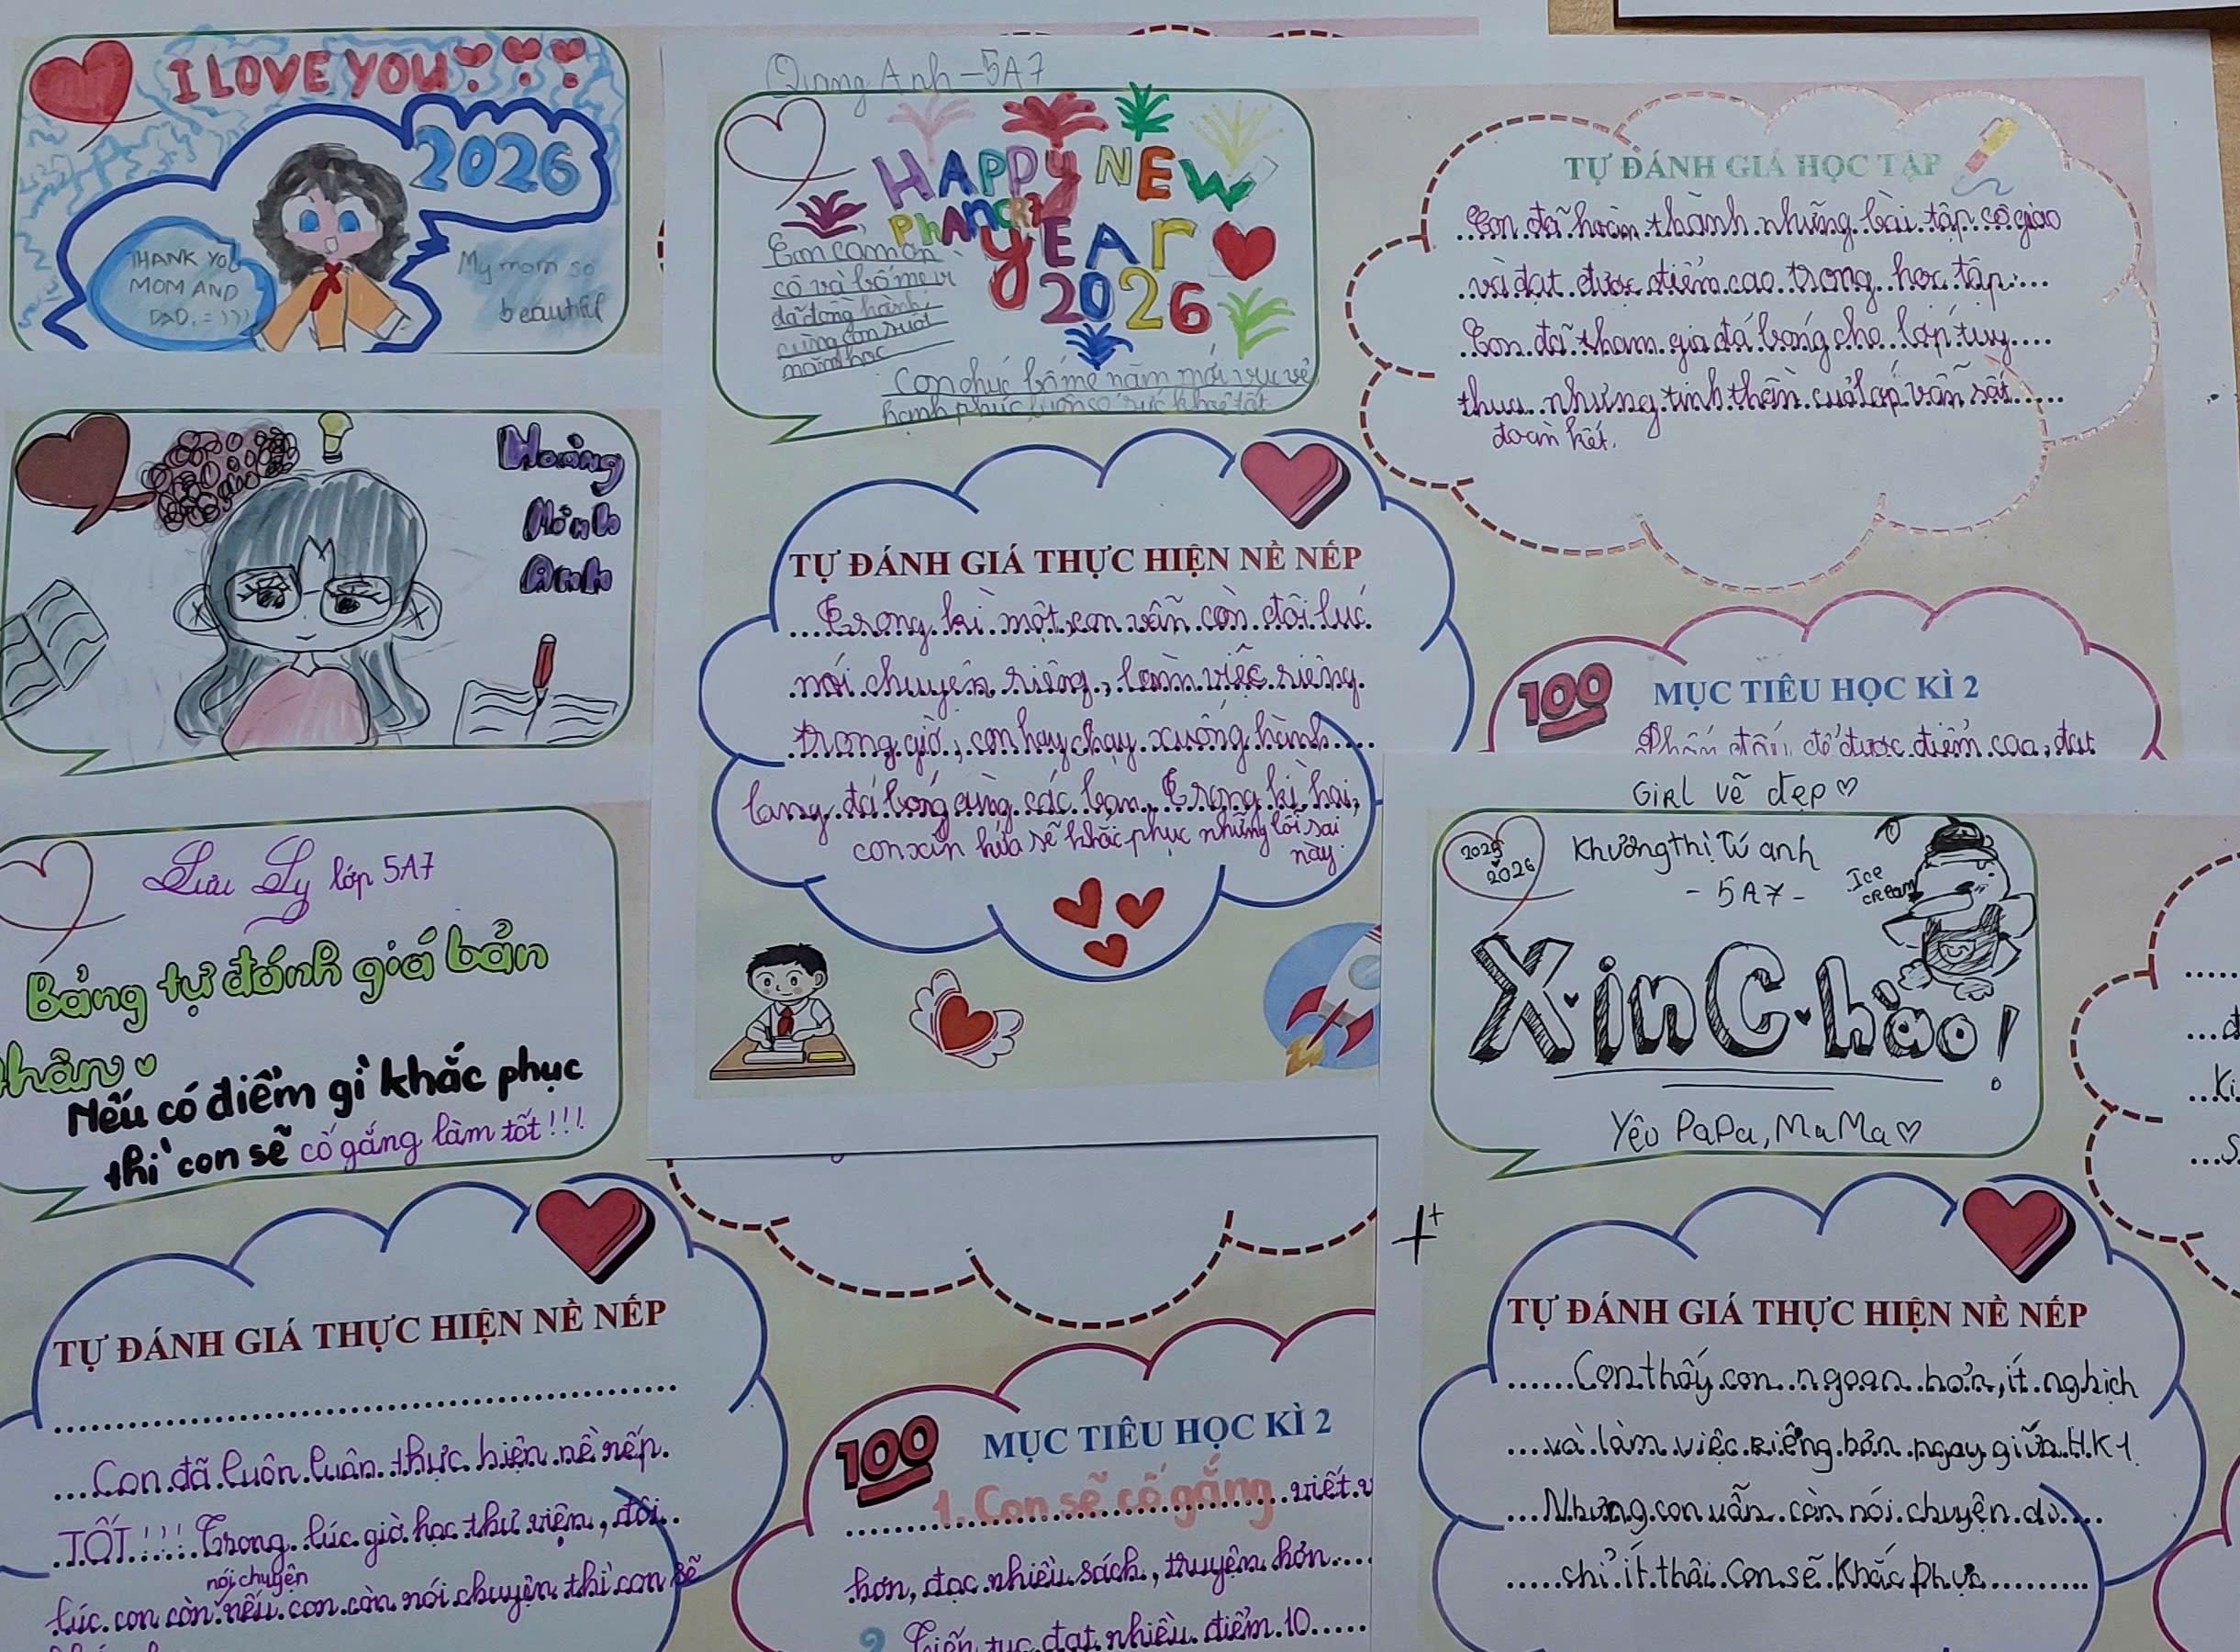 I LOVE YOU
2026
THANK YOU
MOM AND
DAD. =)))
My mom so
beautiful
Hoàng
Minh
Anh
Lưu Ly lớp 5A7
Bảng tự đánh giá bản
thân
Nếu có điểm gì khắc phục
thì con sẽ cố gắng làm tốt!!!
TỰ ĐÁNH GIÁ THỰC HIỆN NỀ NẾP
Con đã luôn luôn thực hiện nề nếp.
TỐT!!! Trong lúc giờ học thư viện, đôi
nói chuyện
lúc con còn nếu con còn nói chuyện thì con sẽ
Quang Anh - 5A7
HAPPY NEW
YEAR
2026
Con cảm ơn
cô và bố mẹ vì
đã đồng hành
cùng con suốt
năm học
Con chúc bố mẹ năm mới vui vẻ
hạnh phúc luôn có sức khoẻ tốt
TỰ ĐÁNH GIÁ THỰC HIỆN NỀ NẾP
Trong kì một con vẫn còn đôi lúc
nói chuyện riêng, làm việc riêng
trong giờ, con hay chạy xuống hành
lang đá bóng cùng các bạn. Trong kì hai,
con xin hứa sẽ khắc phục những lỗi sai
này.
TỰ ĐÁNH GIÁ HỌC TẬP
Con đã hoàn thành những bài tập cô giao
và đạt được điểm cao trong học tập.
Con đã tham gia đá bóng cho lớp tuy
thua nhưng tinh thần cuả lớp vẫn rất
đoàn kết.
100
MỤC TIÊU HỌC KÌ 2
Phấn đấu để được điểm cao, đạt
100
MỤC TIÊU HỌC KÌ 2
1. Con sẽ cố gắng viết v
hơn, đọc nhiều sách, truyện hơn
2 Tiếp tục đạt nhiều điểm 10
GIRL vẽ đẹp
2025
2026
Khương thị Tú anh
- 5A7 -
Ice
cream
Xin Chào!
Yêu PaPa, MaMa
TỰ ĐÁNH GIÁ THỰC HIỆN NỀ NẾP
Con thấy con ngoan hơn, ít nghịch
và làm việc riêng hơn ngay giữa HK1
Nhưng con vẫn còn nói chuyện dù
chỉ ít thôi. Con sẽ khắc phục